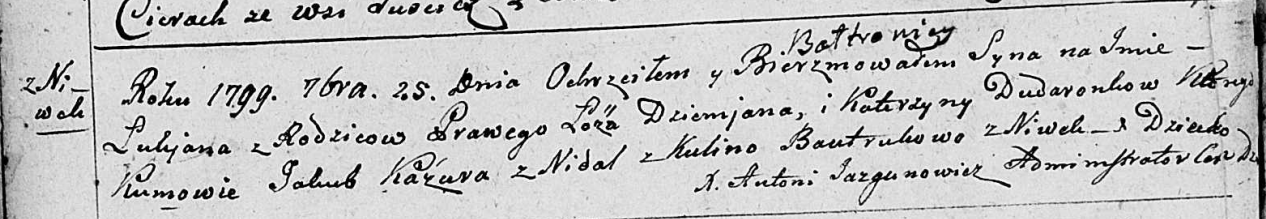 Cierach ze wsi
z Ni-
wek
Battronicy
Roku 1799. 7bra. 25. Dnia Ochrzciłem y Bierzmowałem Syna na Imie -
Lukjana z Rodzicow Prawego Łoża Dziemjana, i Katerzyny Dudaronkow Ktorego
Kumowie Jakub Kaźura z Nidal z Kulino Bautrukowo z Niwek - X Dziecko
X. Antoni Jazgunowicz Administrator Cer